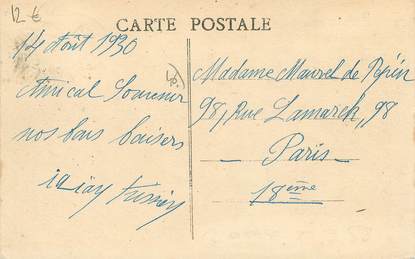 12 €
CARTE POSTALE
14 Août 1930
Amical Souvenir
nos bons baisers
Madame Maurel de Pépin
98, Rue Lamarck, 98
- Paris -
18ème